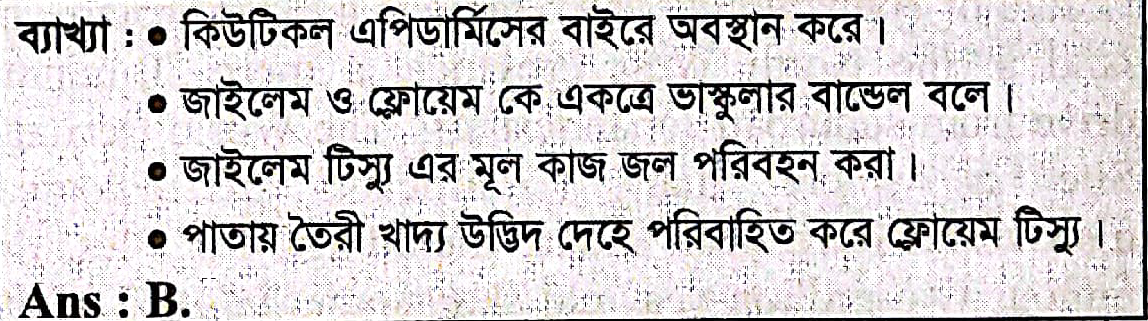 ব্যাখ্যা : • কিউটিকল এপিডার্মিসের বাইরে অবস্থান করে।
• জাইলেম ও ফ্লোয়েম কে একত্রে ভাস্কুলার বান্ডেল বলে।
• জাইলেম টিস্যু এর মূল কাজ জল পরিবহন করা।
• পাতায় তৈরী খাদ্য উদ্ভিদ দেহে পরিবাহিত করে ফ্লোয়েম টিস্যু।
Ans : B.